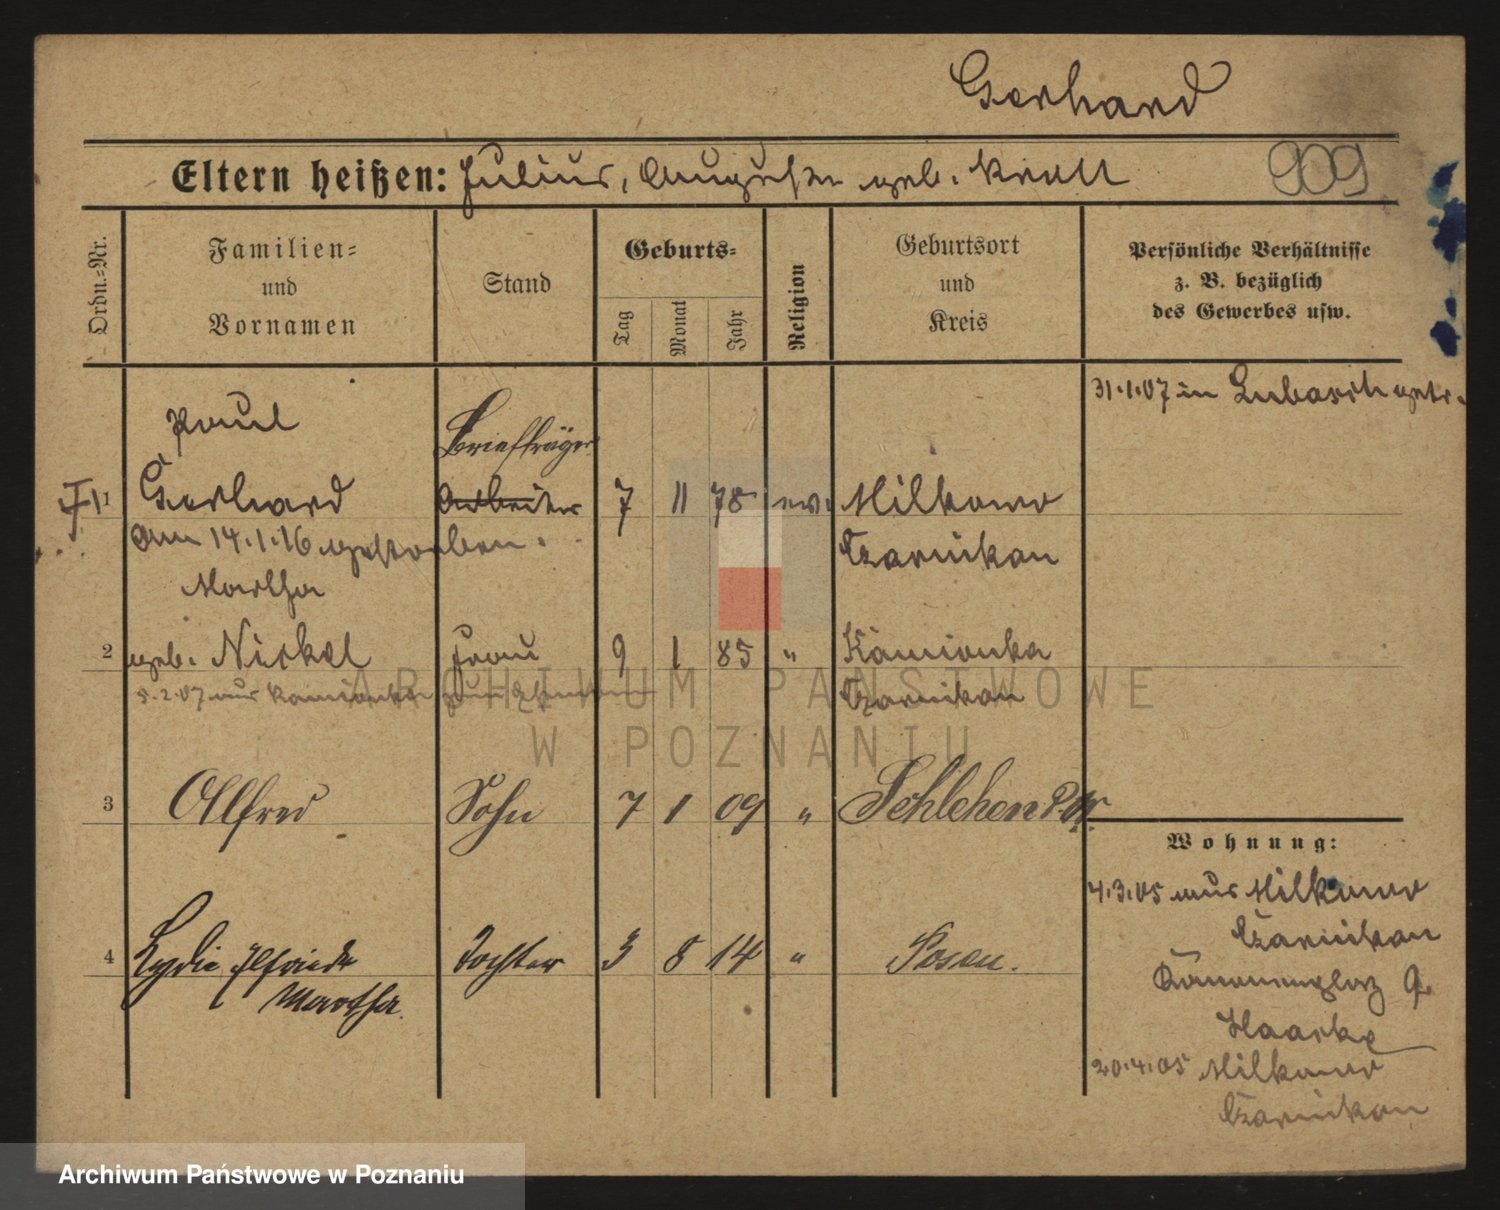 Gerhard
Eltern heißen: Julius, Auguste geb. Kroll
909
Ordn.=Nr.
Familien= und Vornamen
Stand
Geburts=
Tag
Monat
Jahr
Religion
Geburtsort und Kreis
Persönliche Verhältnisse
z. B. bezüglich
des Gewerbes usw.
31.1.07 in Lubasch getr.
Paul
Briefträger
1 Gerhard Arbeiter 7 11 78 ev. Milkowo
Am 14.1.16 gestorben. Czarnikau
Martha
2 geb. Nickel Frau 9 1 85 " Kamionka
5.2.07 aus Kamionka zum Ehemann Czarnikau
3 Alfred Sohn 7 1 09 " Schlehen P.W.
4 Lydia Elfriede Tochter 3 8 14 " Posen.
Martha.
Wohnung:
4.3.05 aus Milkowo
Czarnikau
9
Haacke
20.4.05 Milkowo
Czarnikau
ARCHIWUM PAŃSTWOWE
W POZNANIU
Archiwum Państwowe w Poznaniu